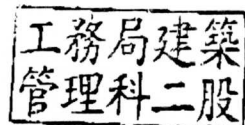 工務局建築
管理科二股